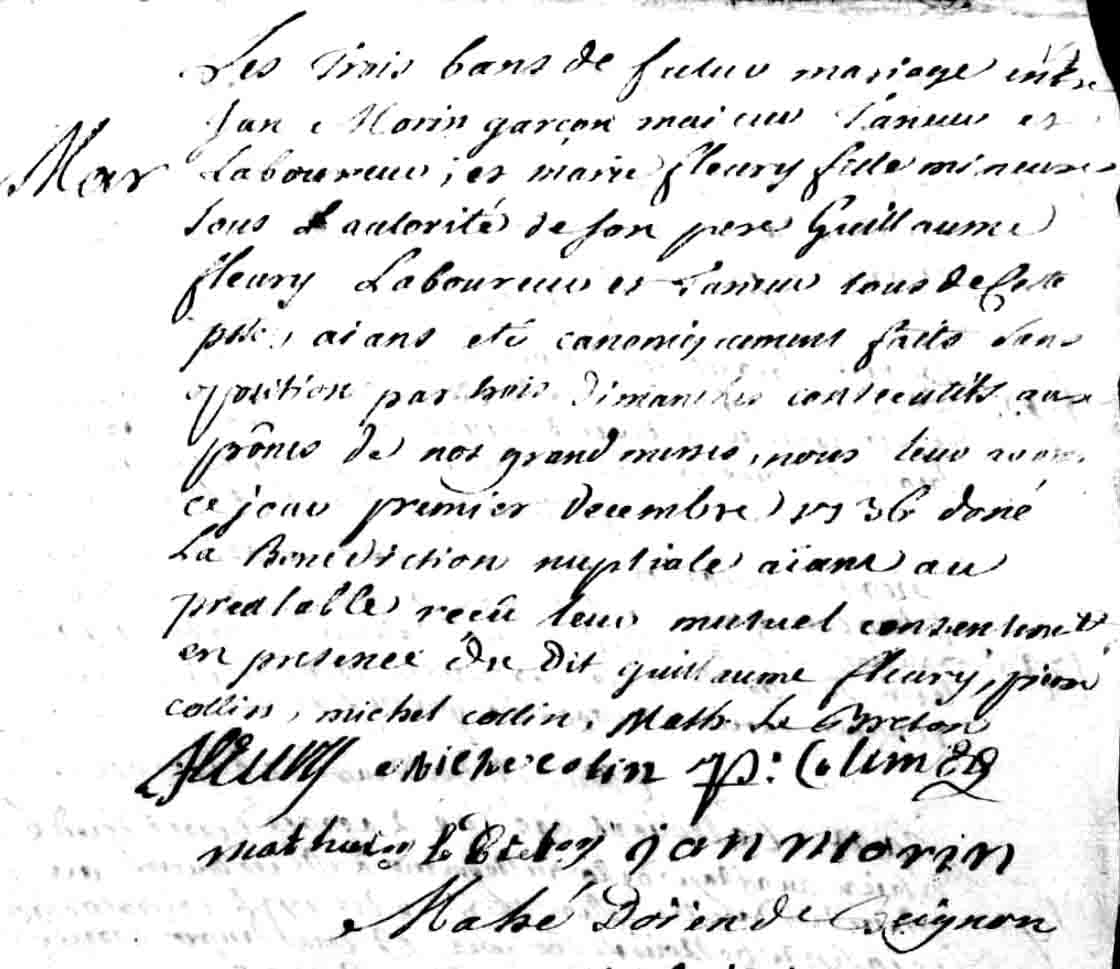 Les trois bans de futur mariage entre
Jan Morin garçon maieur Taneur et
Mar
Laboureur, et marie fleury fille mineure
sous l'autorité de son pere Guillaume
fleury Laboureur et Taneur tous de cette
psse, aians eté canoniquement faits sans
opposition par trois dimanches consecutifs aux
prônes de nos grand messes, nous leur avons
ce jour premier decembre 1736 doné
La Benediction nuptiale aïant au
prealable reçû leur mutuel consentemt
en presence du dit guillaume fleury, pierre
collin, michel collin, Math. Le Breton
fleury Michel colin p: Colin
mathurin le Breton jan morin
Mahé Doïen de Beignon